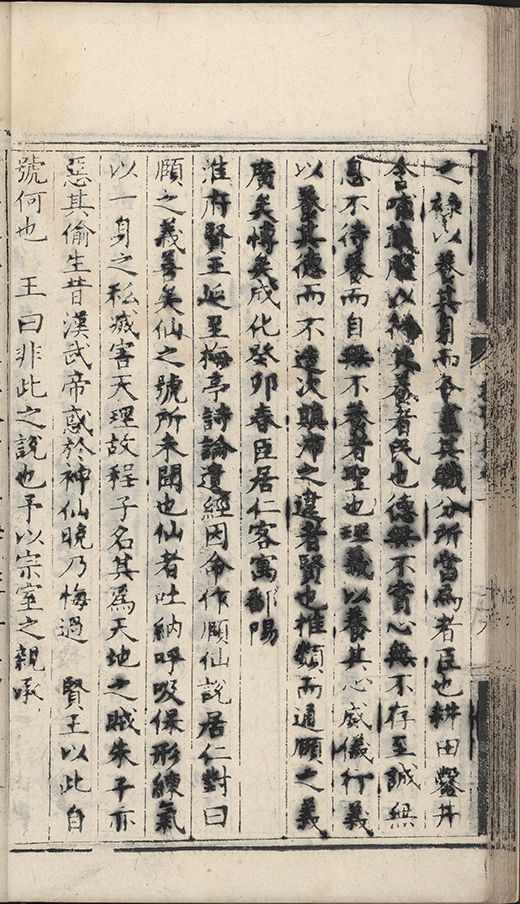 之祿以養其身而各盡其職分所當爲者臣也耕田鑿井
含哺鼓腹以待其養者民也德無不實心無不存至誠無
息不待養而自無不養者聖也理義以養其心威儀行義
以養其德而不違次顛沛之違者賢也推類而通頤之義
廣矣博矣成化癸卯春臣居仁客寓鄱陽
淮府賢王延至梅亭詩論遺經因命作頤仙說居仁對曰
頤之義善矣仙之號所未聞也仙者吐納呼吸保形練氣
以一身之私滅害天理故程子名其爲天地之賊朱子亦
惡其偷生昔漢武帝惑於神仙晚乃悔過　賢王以此自
號何也　王曰非此之說也予以宗室之親承